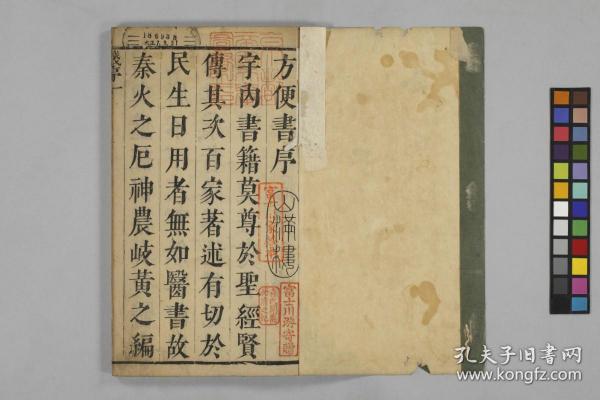 方便書序
宇內書籍莫尊於聖經賢
傳其次百家著述有切於
民生日用者無如醫書故
秦火之厄神農岐黃之編
富士川游寄贈
孔夫子旧书网
www.kongfz.com